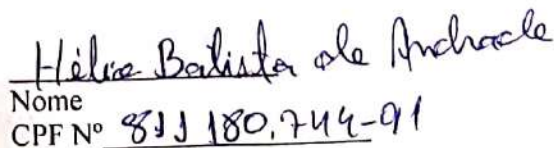 Hélio Batista de Andrade
Nome
CPF Nº 811 180.744-91